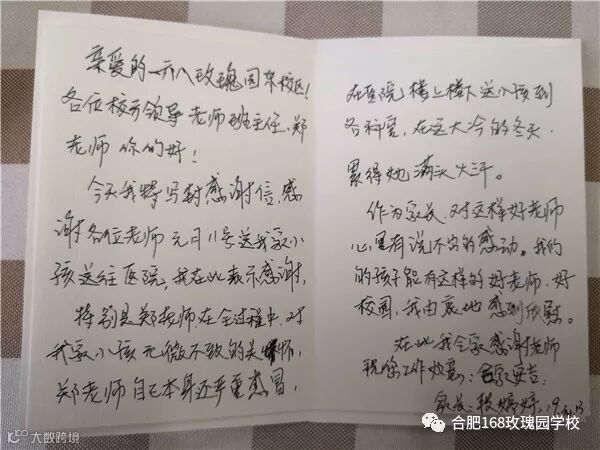 亲爱的一六八玫瑰园东校区!
各位校方领导 老师 班主任、郑
老师 你们好!
今天我特写封感谢信,感
谢各位老师 元月11号送我家小
孩送往医院,我在此表示感谢,
特别是郑老师在全过程中,对
我家小孩无微不致的关怀,
郑老师自己本身还严重感冒,
在医院楼上楼下送小孩到
各科室,在这大冷的冬天,
累得她满头大汗。
作为家长,对这样好老师
心里有说不出的感动。我们
的孩子能有这样的好老师,好
校园,我由衷地感到欣慰。
在此我全家感谢老师
祝您工作 合家安吉:
家长: 婷婷 19.
合肥168玫瑰园学校
大数跨境